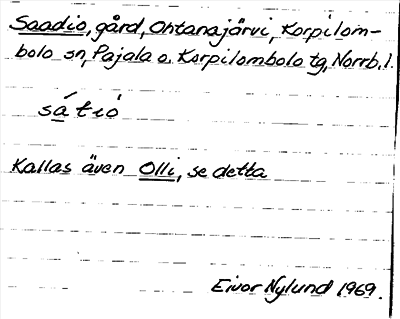 Saadio, gård, Ohtanajärvi, Korpilom-
bolo sn, Pajala o. Korpilombolo tg, Norrb. l.
sátió
Kallas även Olli, se detta
Eivor Nylund 1969.